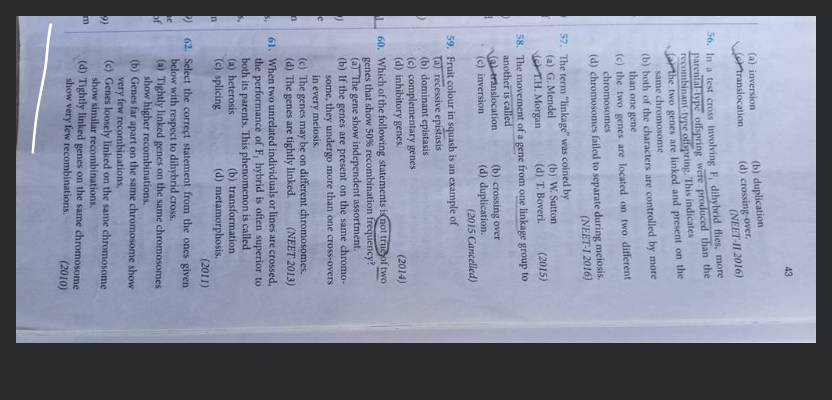 43
(a) inversion (b) duplication
(c) translocation (d) crossing-over.
(NEET-II 2016)
56. In a test cross involving F₁ dihybrid flies, more
parental-type offspring were produced than the
recombinant-type offspring. This indicates
(a) the two genes are linked and present on the
same chromosome
(b) both of the characters are controlled by more
than one gene
(c) the two genes are located on two different
chromosomes
(d) chromosomes failed to separate during meiosis.
(NEET-I 2016)
57. The term "linkage" was coined by
(a) G. Mendel (b) W. Sutton
(c) T.H. Morgan (d) T. Boveri. (2015)
58. The movement of a gene from one linkage group to
another is called
(a) translocation (b) crossing over
(c) inversion (d) duplication.
(2015 Cancelled)
59. Fruit colour in squash is an example of
(a) recessive epistasis
(b) dominant epistasis
(c) complementary genes
(d) inhibitory genes. (2014)
60. Which of the following statements is not true of two
genes that show 50% recombination frequency?
(a) The gene show independent assortment.
(b) If the genes are present on the same chromo-
some, they undergo more than one cross-overs
in every meiosis.
(c) The genes may be on different chromosomes.
(d) The genes are tightly linked. (NEET 2013)
61. When two unrelated individuals or lines are crossed,
the performance of F₁ hybrid is often superior to
both its parents. This phenomenon is called
(a) heterosis (b) transformation
(c) splicing (d) metamorphosis.
(2011)
62. Select the correct statement from the ones given
below with respect to dihybrid cross.
(a) Tightly linked genes on the same chromosomes
show higher recombinations.
(b) Genes far apart on the same chromosome show
very few recombinations.
(c) Genes loosely linked on the same chromosome
show similar recombinations.
(d) Tightly linked genes on the same chromosome
show very few recombinations. (2010)